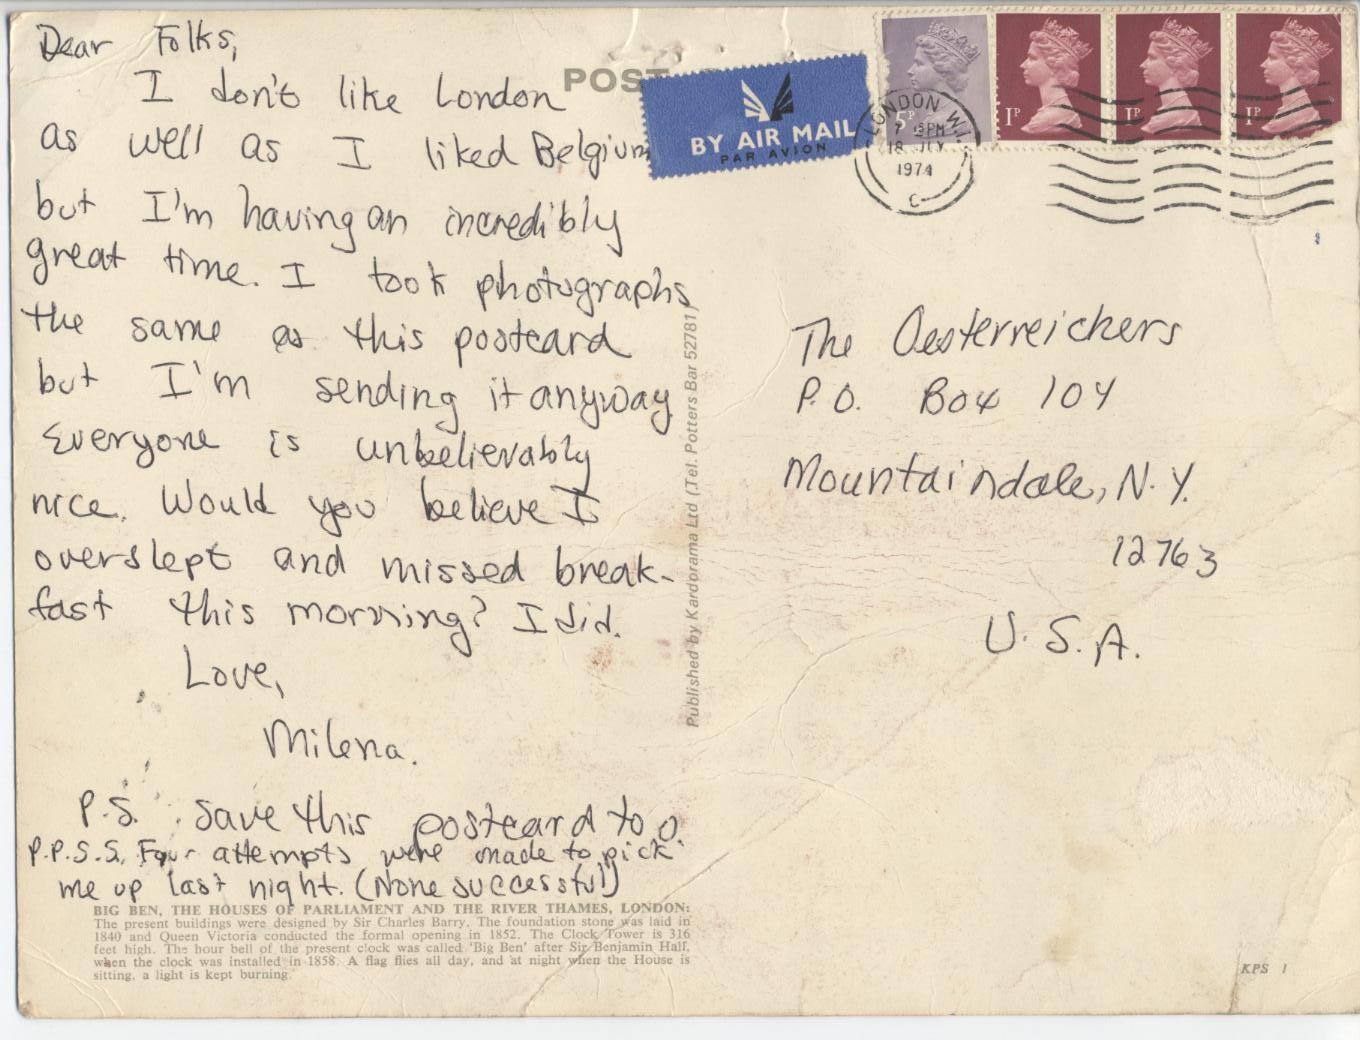 Dear Folks,
I don't like London
as well as I liked Belgium
but I'm having an incredibly
great time. I took photographs
the same as this postcard
but I'm sending it anyway
Everyone is unbelievably
nice. Would you believe I
overslept and missed break-
fast this morning? I did.
Love,
Milena.
P.S. Save this postcard too.
P.P.S.S. Four attempts were made to pick
me up last night. (None successful)
BIG BEN, THE HOUSES OF PARLIAMENT AND THE RIVER THAMES, LONDON:
The present buildings were designed by Sir Charles Barry. The foundation stone was laid in
1840 and Queen Victoria conducted the formal opening in 1852. The Clock Tower is 316
feet high. The hour bell of the present clock was called 'Big Ben' after Sir Benjamin Hall,
when the clock was installed in 1858. A flag flies all day, and at night when the House is
sitting, a light is kept burning.
POST
Published by Kardorama Ltd (Tel. Potters Bar 52781)
BY AIR MAIL
PAR AVION
5P
1P
1P
1P
LONDON W.1
PM
18
1974
C
The Oesterreichers
P.O. Box 104
Mountaindale, N.Y.
12763
U.S.A.
KPS 1